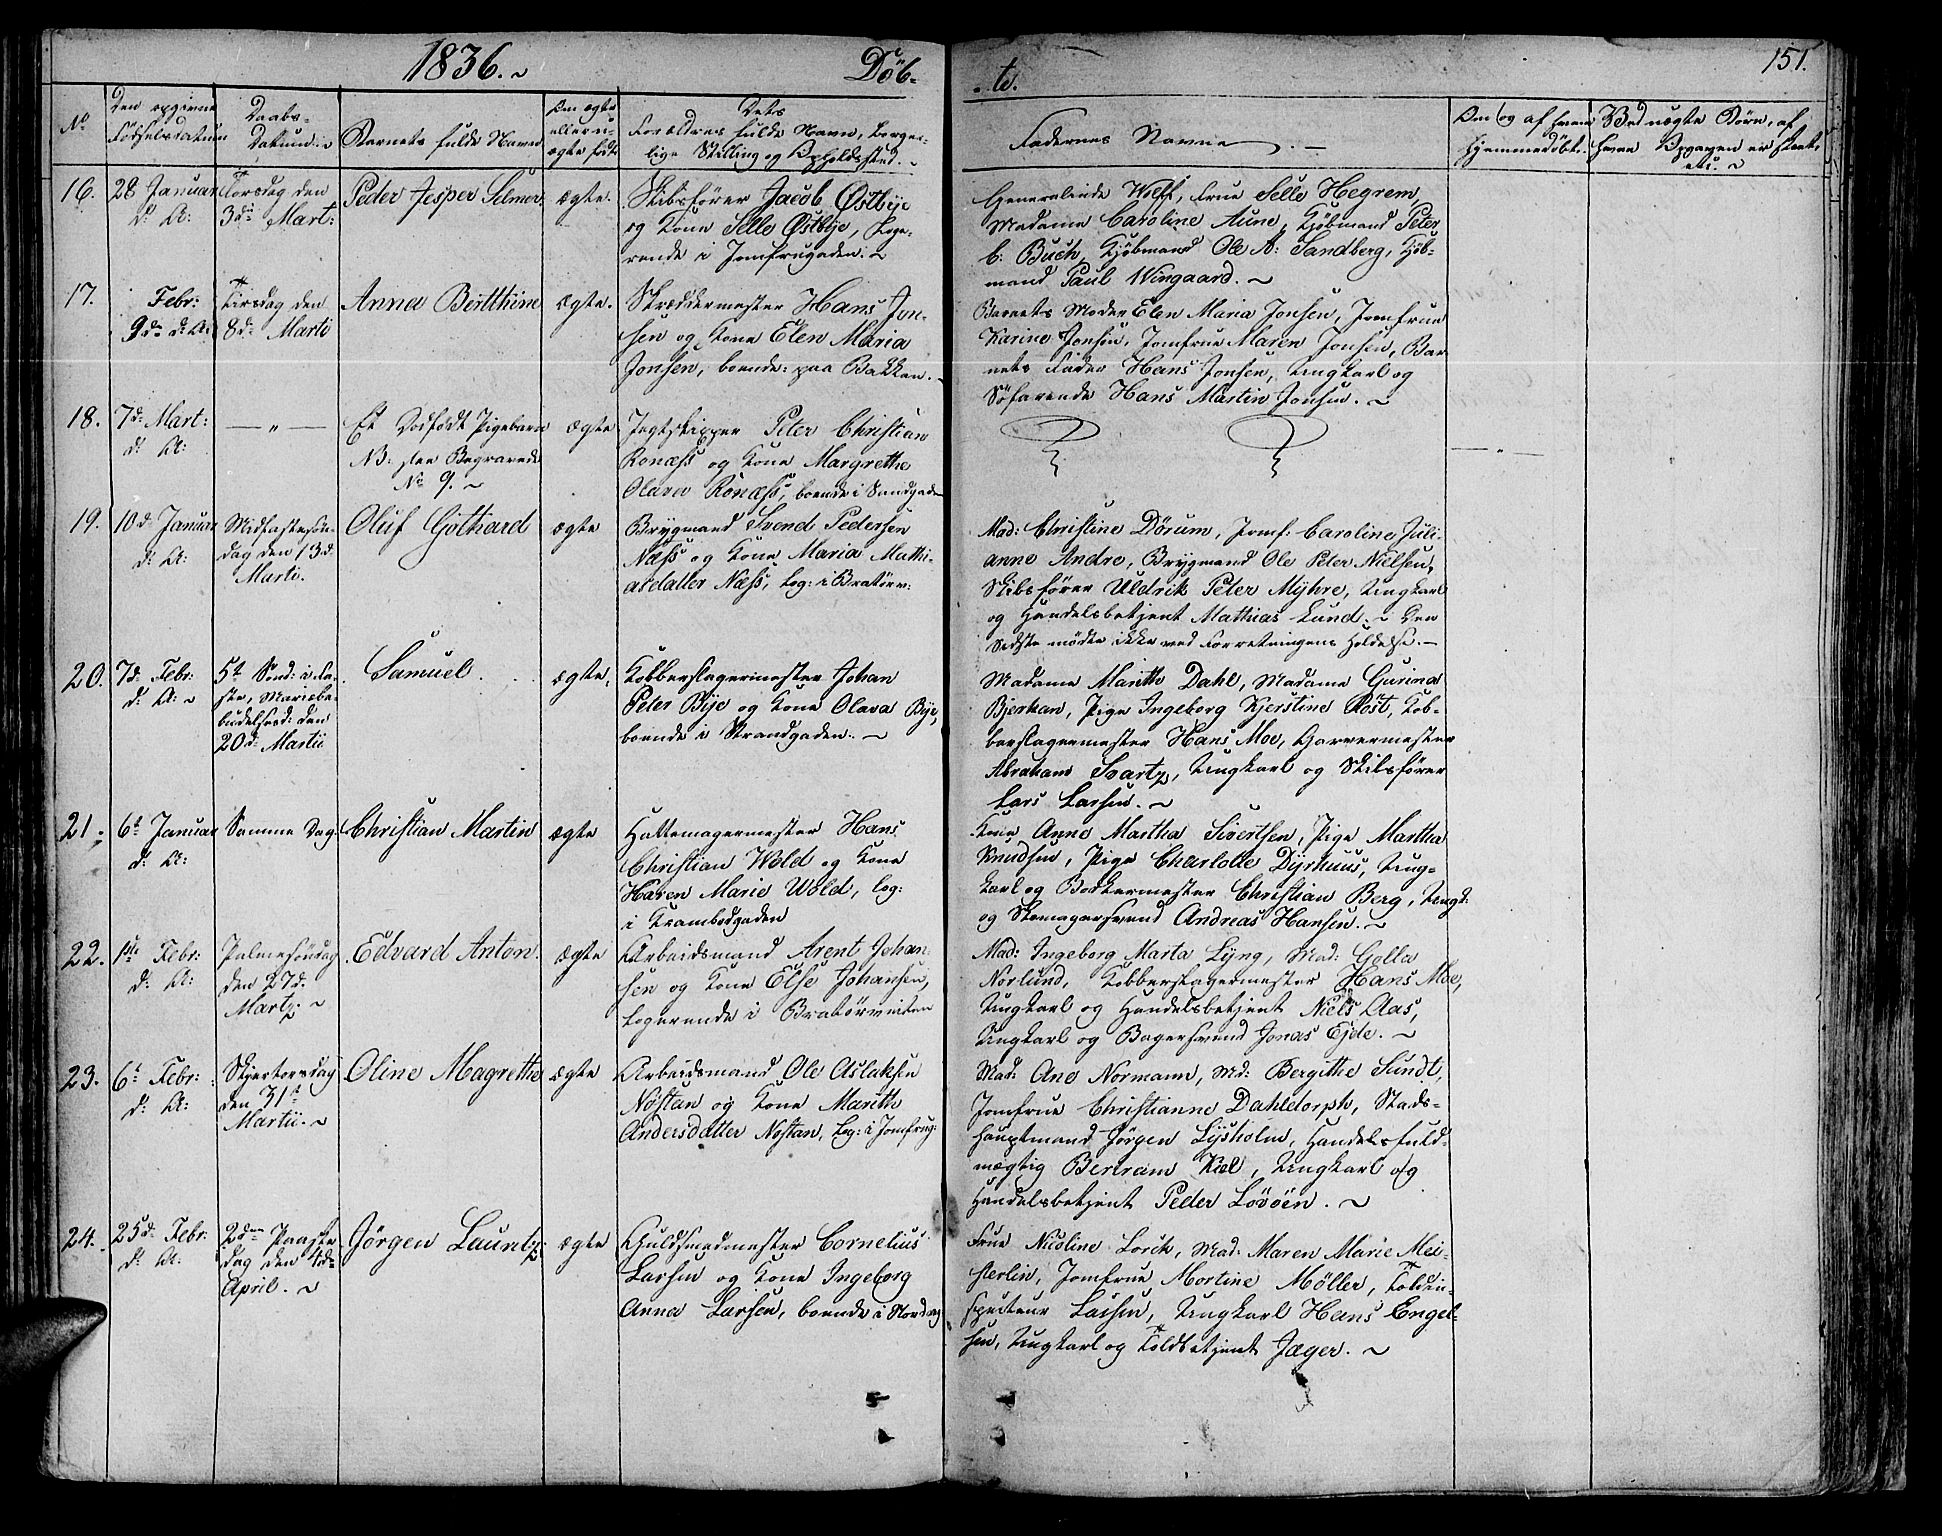 1836.
Döb-
te.
151.
No
Den opgivne Fødselsdatum
Daabs-Datum.
Barnets fulde Navn
Om ægte eller uægte født
Dets Forældres fulde Navn, borgerlige Stilling og Opholdssted.
Faddernes Navne.
Om og af hvem hjemmedøbt.
Ved uægte Børn, af hvem Opgaven er skeet, etc.
16.
28 Januar
d: A:
Torsdag den
3die Mart:
Peder Jesper Selmer
ægte.
Skibsfører Jacob Østbye
og Kone Selle Østbye, loge-
rende i Jomfrugaden.
Generalinde Wolff, Frue Selle Hegrem,
Madame Caroline Aune, Kjøbmand Peter
C: Buch, Kjøbmand Ole A: Sandberg, Kjøb-
mand Paul Wingaard.
17.
Febr:
9de d: A:
Tirsdag den
8de Marti
Anna Beritthine
ægte.
Skræddermester Hans Jon-
sen og Kone Elen Maria
Jonsen, boende paa Bakken.
Barnets Moder Elen Maria Jonsen, Jomfrue
Karine Jonsen, Jomfrue Maren Jonsen, Bar-
nets Fader Hans Jonsen, Ungkarl og
Søfarende Hans Martin Jonsen.
18.
7de Mart:
d: A:
— „ —
Et Dødfødt Pigebarn
NB: see Begravede
No 9.
ægte
Jagtskipper Peter Christian
Ronæss og Kone Margrethe
Olava Ronæss, boende i Sandgaden
— „ —
19.
10de Januar
d: A:
Midfastesøn-
dag den 13de
Marti.
Oluf Gothard
ægte
Brygmand Svend Pedersen
Næss og Kone Maria Mathi-
asdatter Næss, log: i Bratørv:
Mad: Christine Dörum, Jomf: Caroline Juli-
anne Andro, Brygmand Ole Peter Nielsen,
Skibsfører Uldrik Peter Myhre, Ungkarl
og Handelsbetjent Mathias Lund. Den
Sidste mødte ikke ved Forretningens Holdelse.
20.
7de Febr:
d: A:
5te Sønd: i Fa-
ste, Mariæbe-
budelsesd: den
20de Martii
Samuel
ægte,
Kobberslagermester Johan
Peter Bye og Kone Olava Bye,
boende i Strandgaden.
Madame Marith Dahl, Madame Gurina
Bjerkan, Pige Ingeborg Kjerstine Röst, Kob-
berslagermester Hans Moe, Garvermester
Abraham Svartz, Ungkarl og Skibsfører
Lars Larsen.
21.
6te Januar
d: A:
Samme Dag
Christian Martin
ægte
Hattemagermester Hans
Christian Wold og Kone
Haren Marie Wold, log:
i Krambodgaden
Kone Anne Martha Sivertsen, Pige Martha
Knudsen, Pige Charlotte Dyrhuus, Ung-
karl og Bødkermester Christian Berg, Ungk:
og Skomagersvend Andreas Hansen.
22.
1ste Febr:
d: A:
Palmesöndag
den 27de
Martz.
Edvard Anton.
ægte
Arbeidsmand Arent Johan-
sen og Kone Else Johansen,
logerende i Bratørveiten
Mad: Ingeborg Marta Lyng, Mad: Golla
Norlund, Kobberslagermester Hans Moe,
Ungkarl og Handelsbetjent Niels Aas,
Ungkarl og Bagersvend Jonas Ejde.
23.
6te Febr:
d: A:
Skjertorsdag
den 31te
Martii.
Oline Magrethe
ægte
Arbeidsmand Ole Aslaksen
Nostan og Kone Marith
Andersdatter Nostan, log: i Jomfrug:
Mad: Ane Normann, Md: Bergitthe Sundt,
Jomfrue Christianne Dahldorph, Stads-
hauptmand Jørgen Lysholm, Handelsfuld-
mægtig Bertram Kiel, Ungkarl og
Handelsbetjent Peder Lövöen.
24.
25de Febr:
d: A:
2den Paaske-
dag den 4de
April.
Jörgen Lauritz
ægte
Guldsmedmester Cornelius
Larsen og Kone Ingeborg
Anna Larsen, boende i Nordreg
Frue Nicoline Lorck, Mad: Maren Marie Mei-
sterlin, Jomfrue Mortine Möller, Toldin-
specteur Lassen, Ungkarl Hans Engel-
sen, Ungkarl og Toldbetjent Jæger.